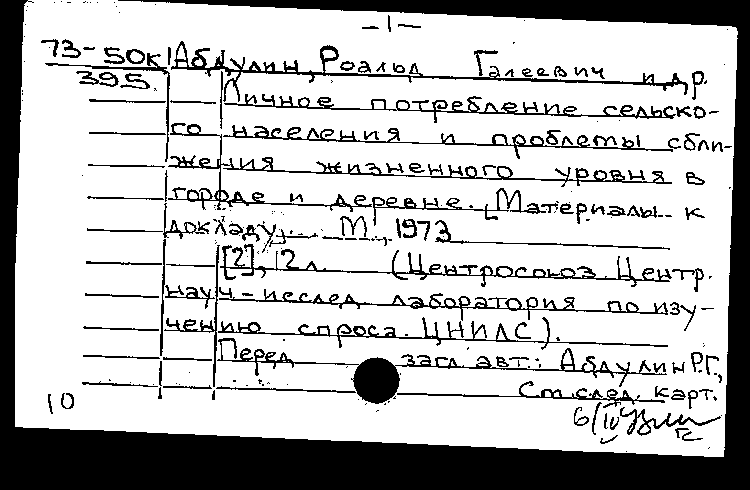 — 1 —
73-50к Абдулин, Роальд Галеевич и др.
395. Личное потребление сельско-
го населения и проблемы сбли-
жения жизненного уровня в
городе и деревне. [Материалы к
докладу]... М., 1973
[2], 12 л. (Центросоюз. Центр.
науч-исслед. лаборатория по изу-
чению спроса. ЦНИЛС).
Перед загл. авт.: Абдулин Р.Г.,
См. след. карт.
10 6/IV